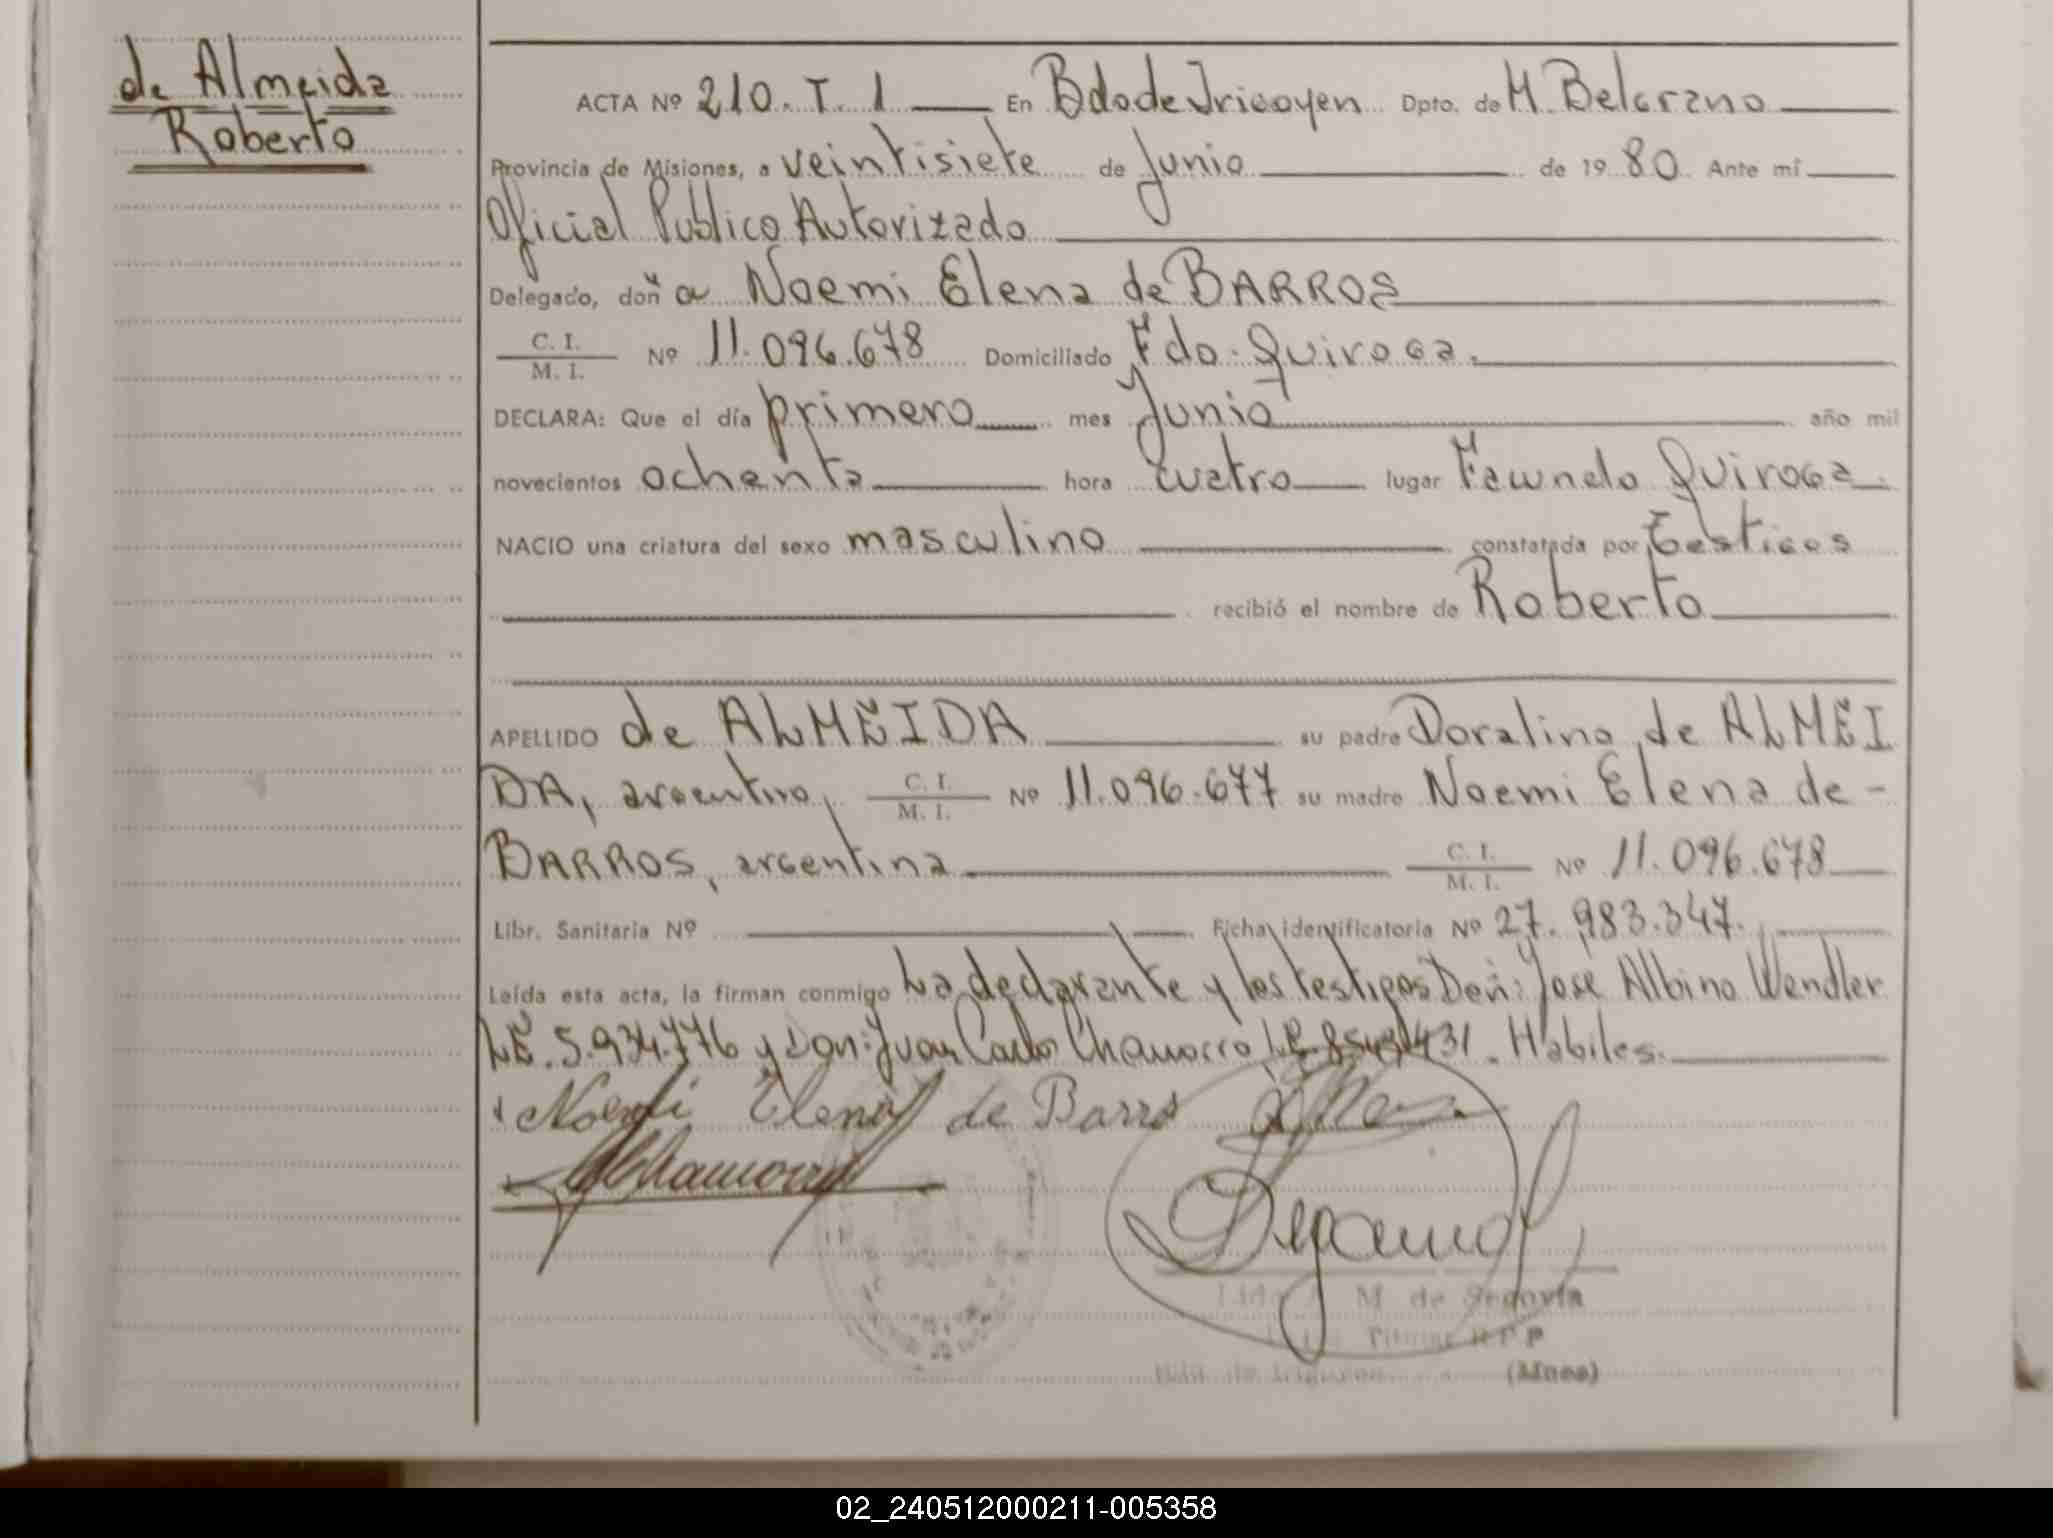 de Almeida
Roberto
ACTA Nº 210. T. 1 En Bdo de Irigoyen Dpto. de M. Belgrano
Provincia de Misiones, a veintisiete de Junio de 1980. Ante mí
Oficial Publico Autorizado
Delegado, doña Noemi Elena de BARROS
C. I. / M. I. Nº 11.096.678 Domiciliado Fdo. Quiroga.
DECLARA: Que el día primero mes Junio año mil
novecientos ochenta hora cuatro lugar Facundo Quiroga.
NACIO una criatura del sexo masculino constatada por Testigos
recibió el nombre de Roberto
APELLIDO de ALMEIDA su padre Doralino de ALMEI
DA, argentino, C. I. / M. I. Nº 11.096.677 su madre Noemi Elena de-
BARROS, argentina C. I. / M. I. Nº 11.096.678
Libr. Sanitaria Nº Ficha identificatoria Nº 27.983.347.
Leída esta acta, la firman conmigo La declarante y los testigos Don: José Albino Wendler
LE. 5.934.776 y Don: Juan Carlos Chamorro L.E. 431. Habiles.
Noemi Elena de Barro
Chamorro
M. de Segovia
Titular R P P
(Mnes)
02_240512000211-005358